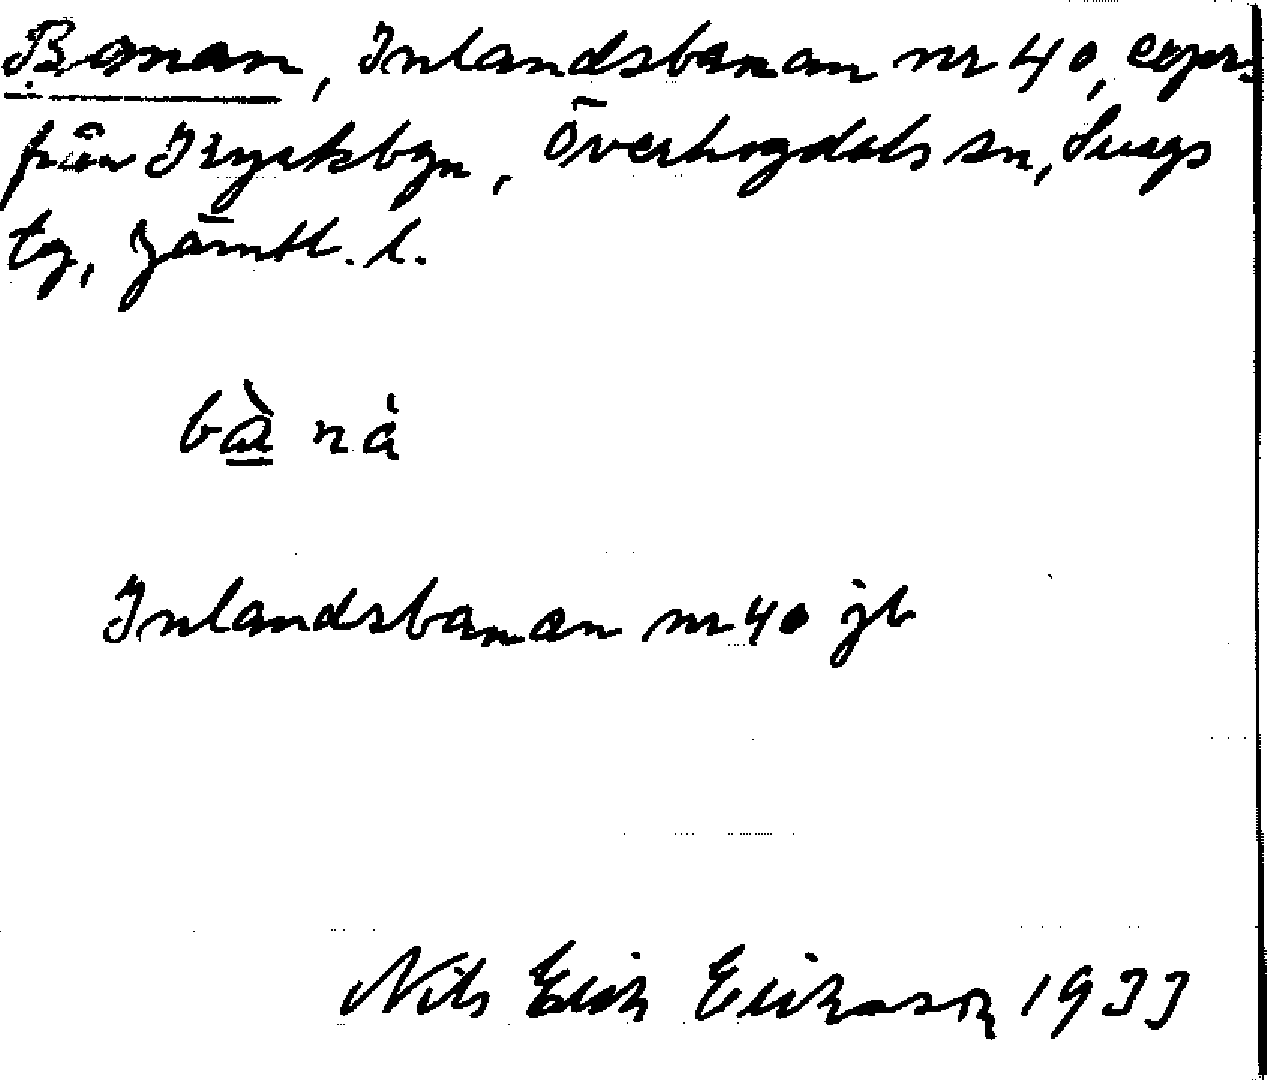 Banan, Inlandsbanan nr 40, expr.
från Tryckbyn, Överhogdals sn, Svegs
tg, Jämtl. l.
bà nà
Inlandsbanan nr 40 jb
Nils Erik Eriksson 1933